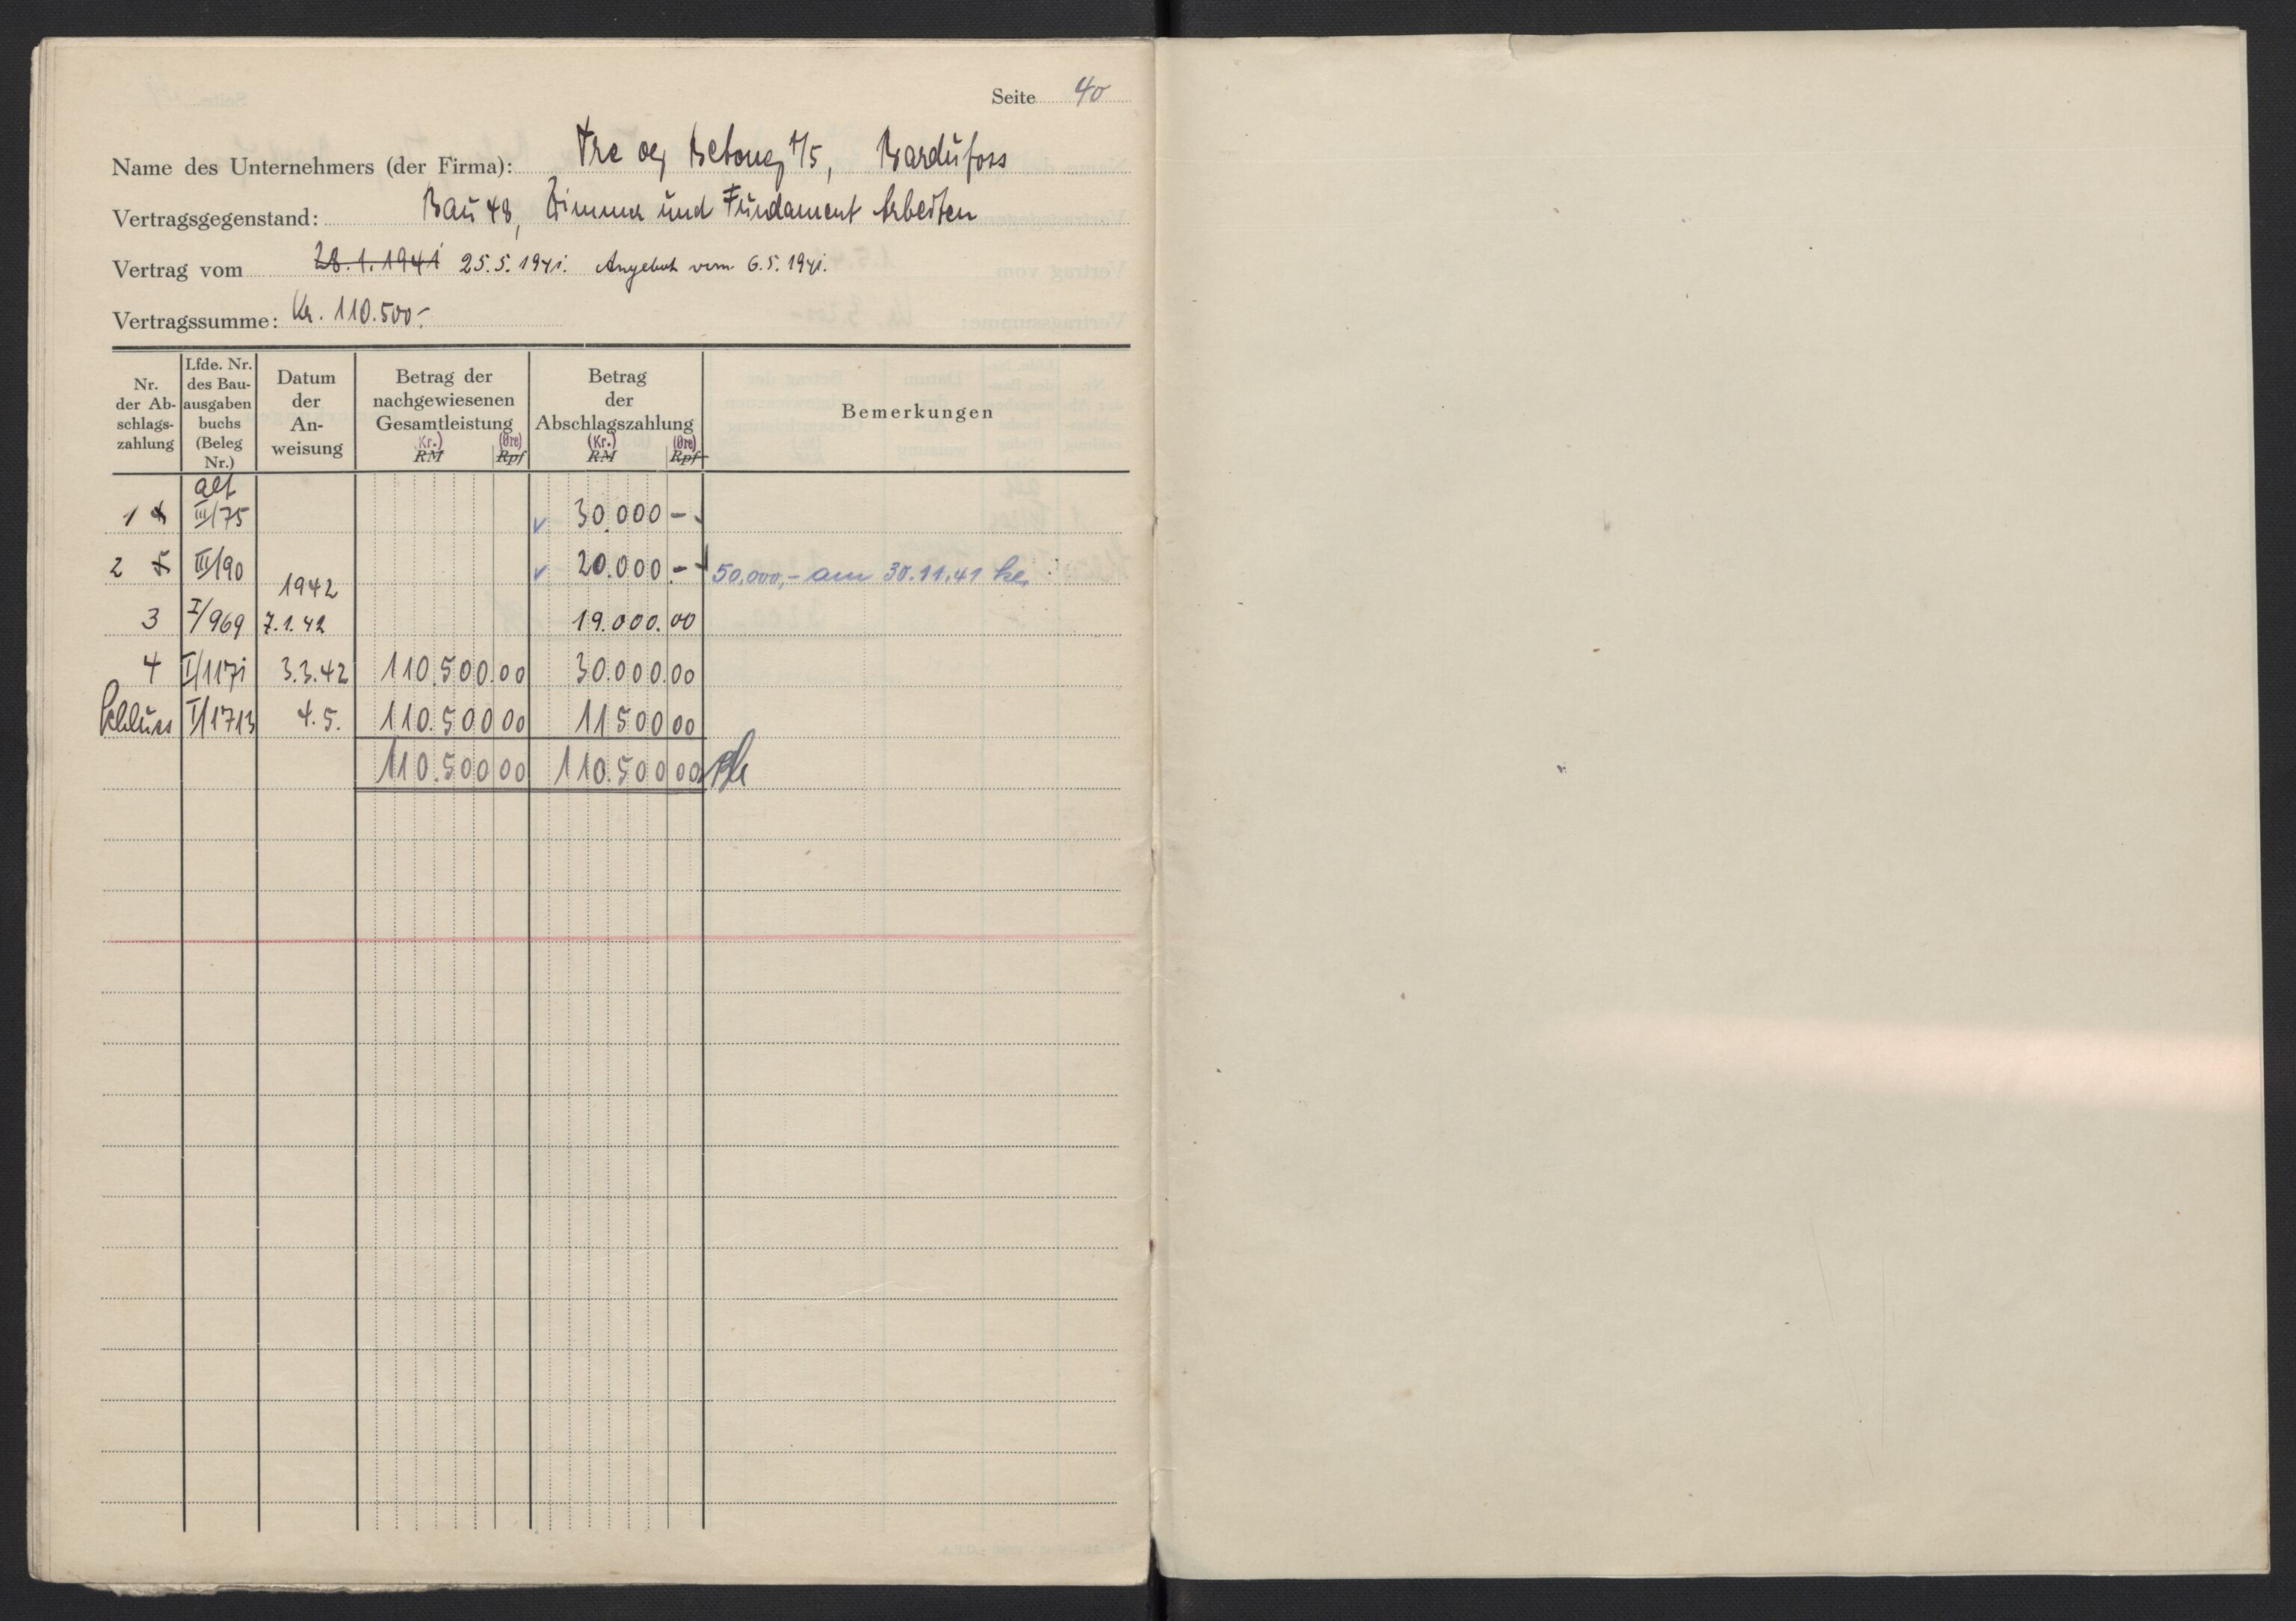 Seite 40
Name des Unternehmers (der Firma): Tre og Betong A/S, Bardufoss
Vertragsgegenstand: Bau 48, Zimmer und Fundament Arbeiten
Vertrag vom 28.1.1941 25.5.1941. Angebot vom 6.5.1941.
Vertragssumme: Kr. 110.500.-
Nr. der Ab-schlags-zahlung
Lfde. Nr. des Bau-ausgaben buchs (Beleg Nr.)
Datum der An-weisung
Betrag der nachgewiesenen Gesamtleistung
(Kr.) (Øre)
RM Rpf
Betrag der Abschlagszahlung
(Kr.) (Øre)
RM Rpf
Bemerkungen
alt
1 4 III/75 30.000 -
2 5 III/90 20.000.- 50.000,- am 30.11.41
1942
3 I/969 7.1.42 19.000.00
4 I/1171 3.3.42 110.500.00 30.000.00
Schluss I/1713 4.5. 110.500 00 11500 00
110.500 00 110.500 00